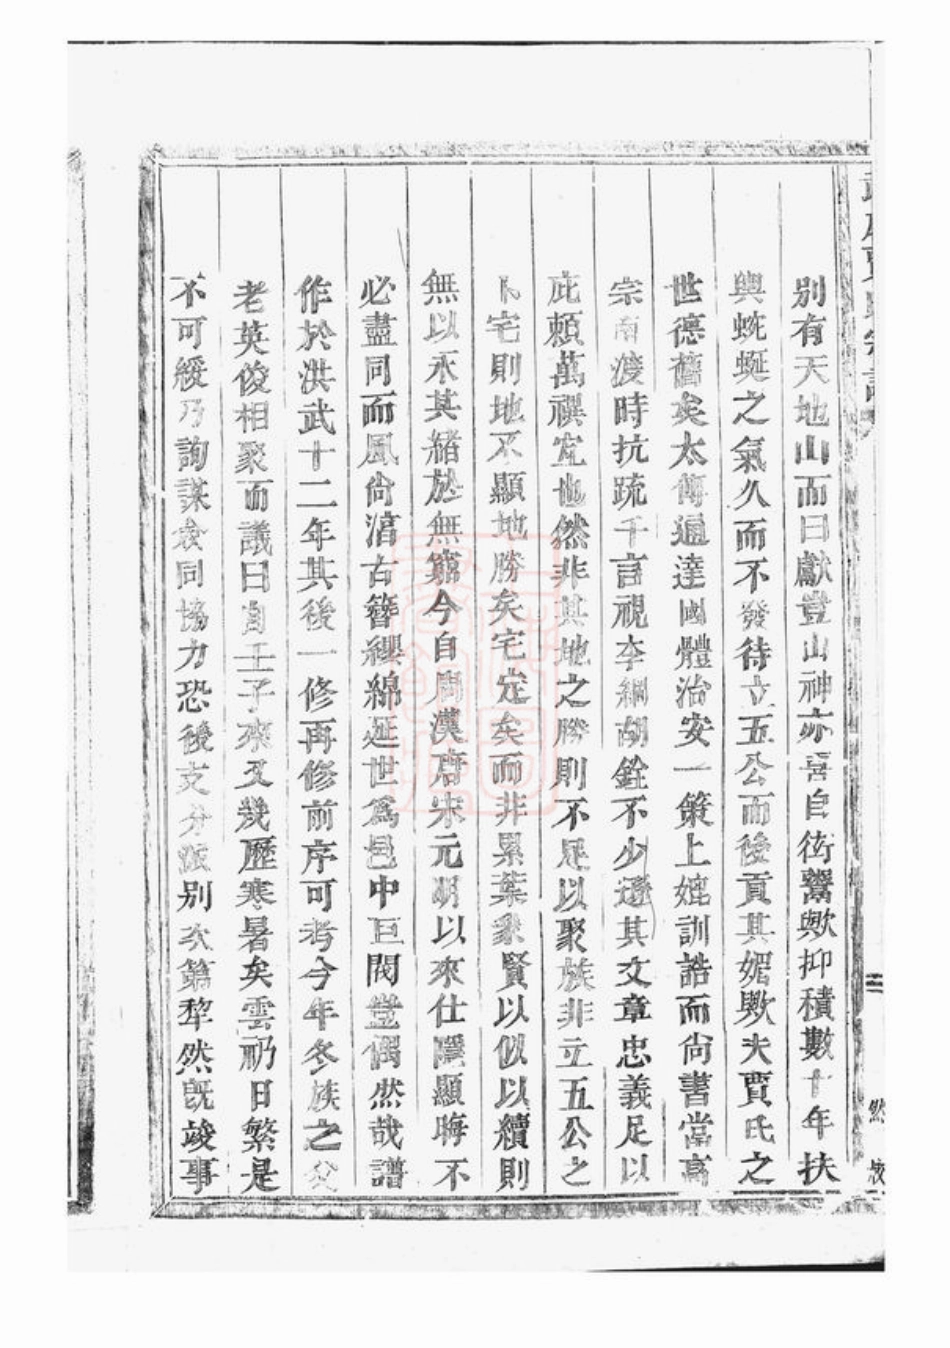 別有天地山而曰獻豈山神亦喜自衒鬻歟抑積數十年扶
輿蜿蜒之氣久而不發待立五公而後貢其媚歟夫賈氏之
世德舊矣太傅通達國體治安一策上媲訓誥而尚書當高
宗南渡時抗疏千言視李綱胡銓不少遜其文章忠義足以
庇賴萬禩宜也然非其地之勝則不足以聚族非立五公之
卜宅則地不顯地勝矣宅定矣而非累葉象賢以似以續則
無以永其緒於無窮今自周漢唐宋元明以來仕隱顯晦不
必盡同而風尚湻古簪纓綿延世為邑中巨閥豈偶然哉譜
作於洪武十二年其後一修再修前序可考今年冬族之父
老英俊相聚而議曰自壬子來又幾歷寒暑矣雲礽日繁是
不可緩乃詢謀僉同協力恐後支分派別次第犂然既竣事